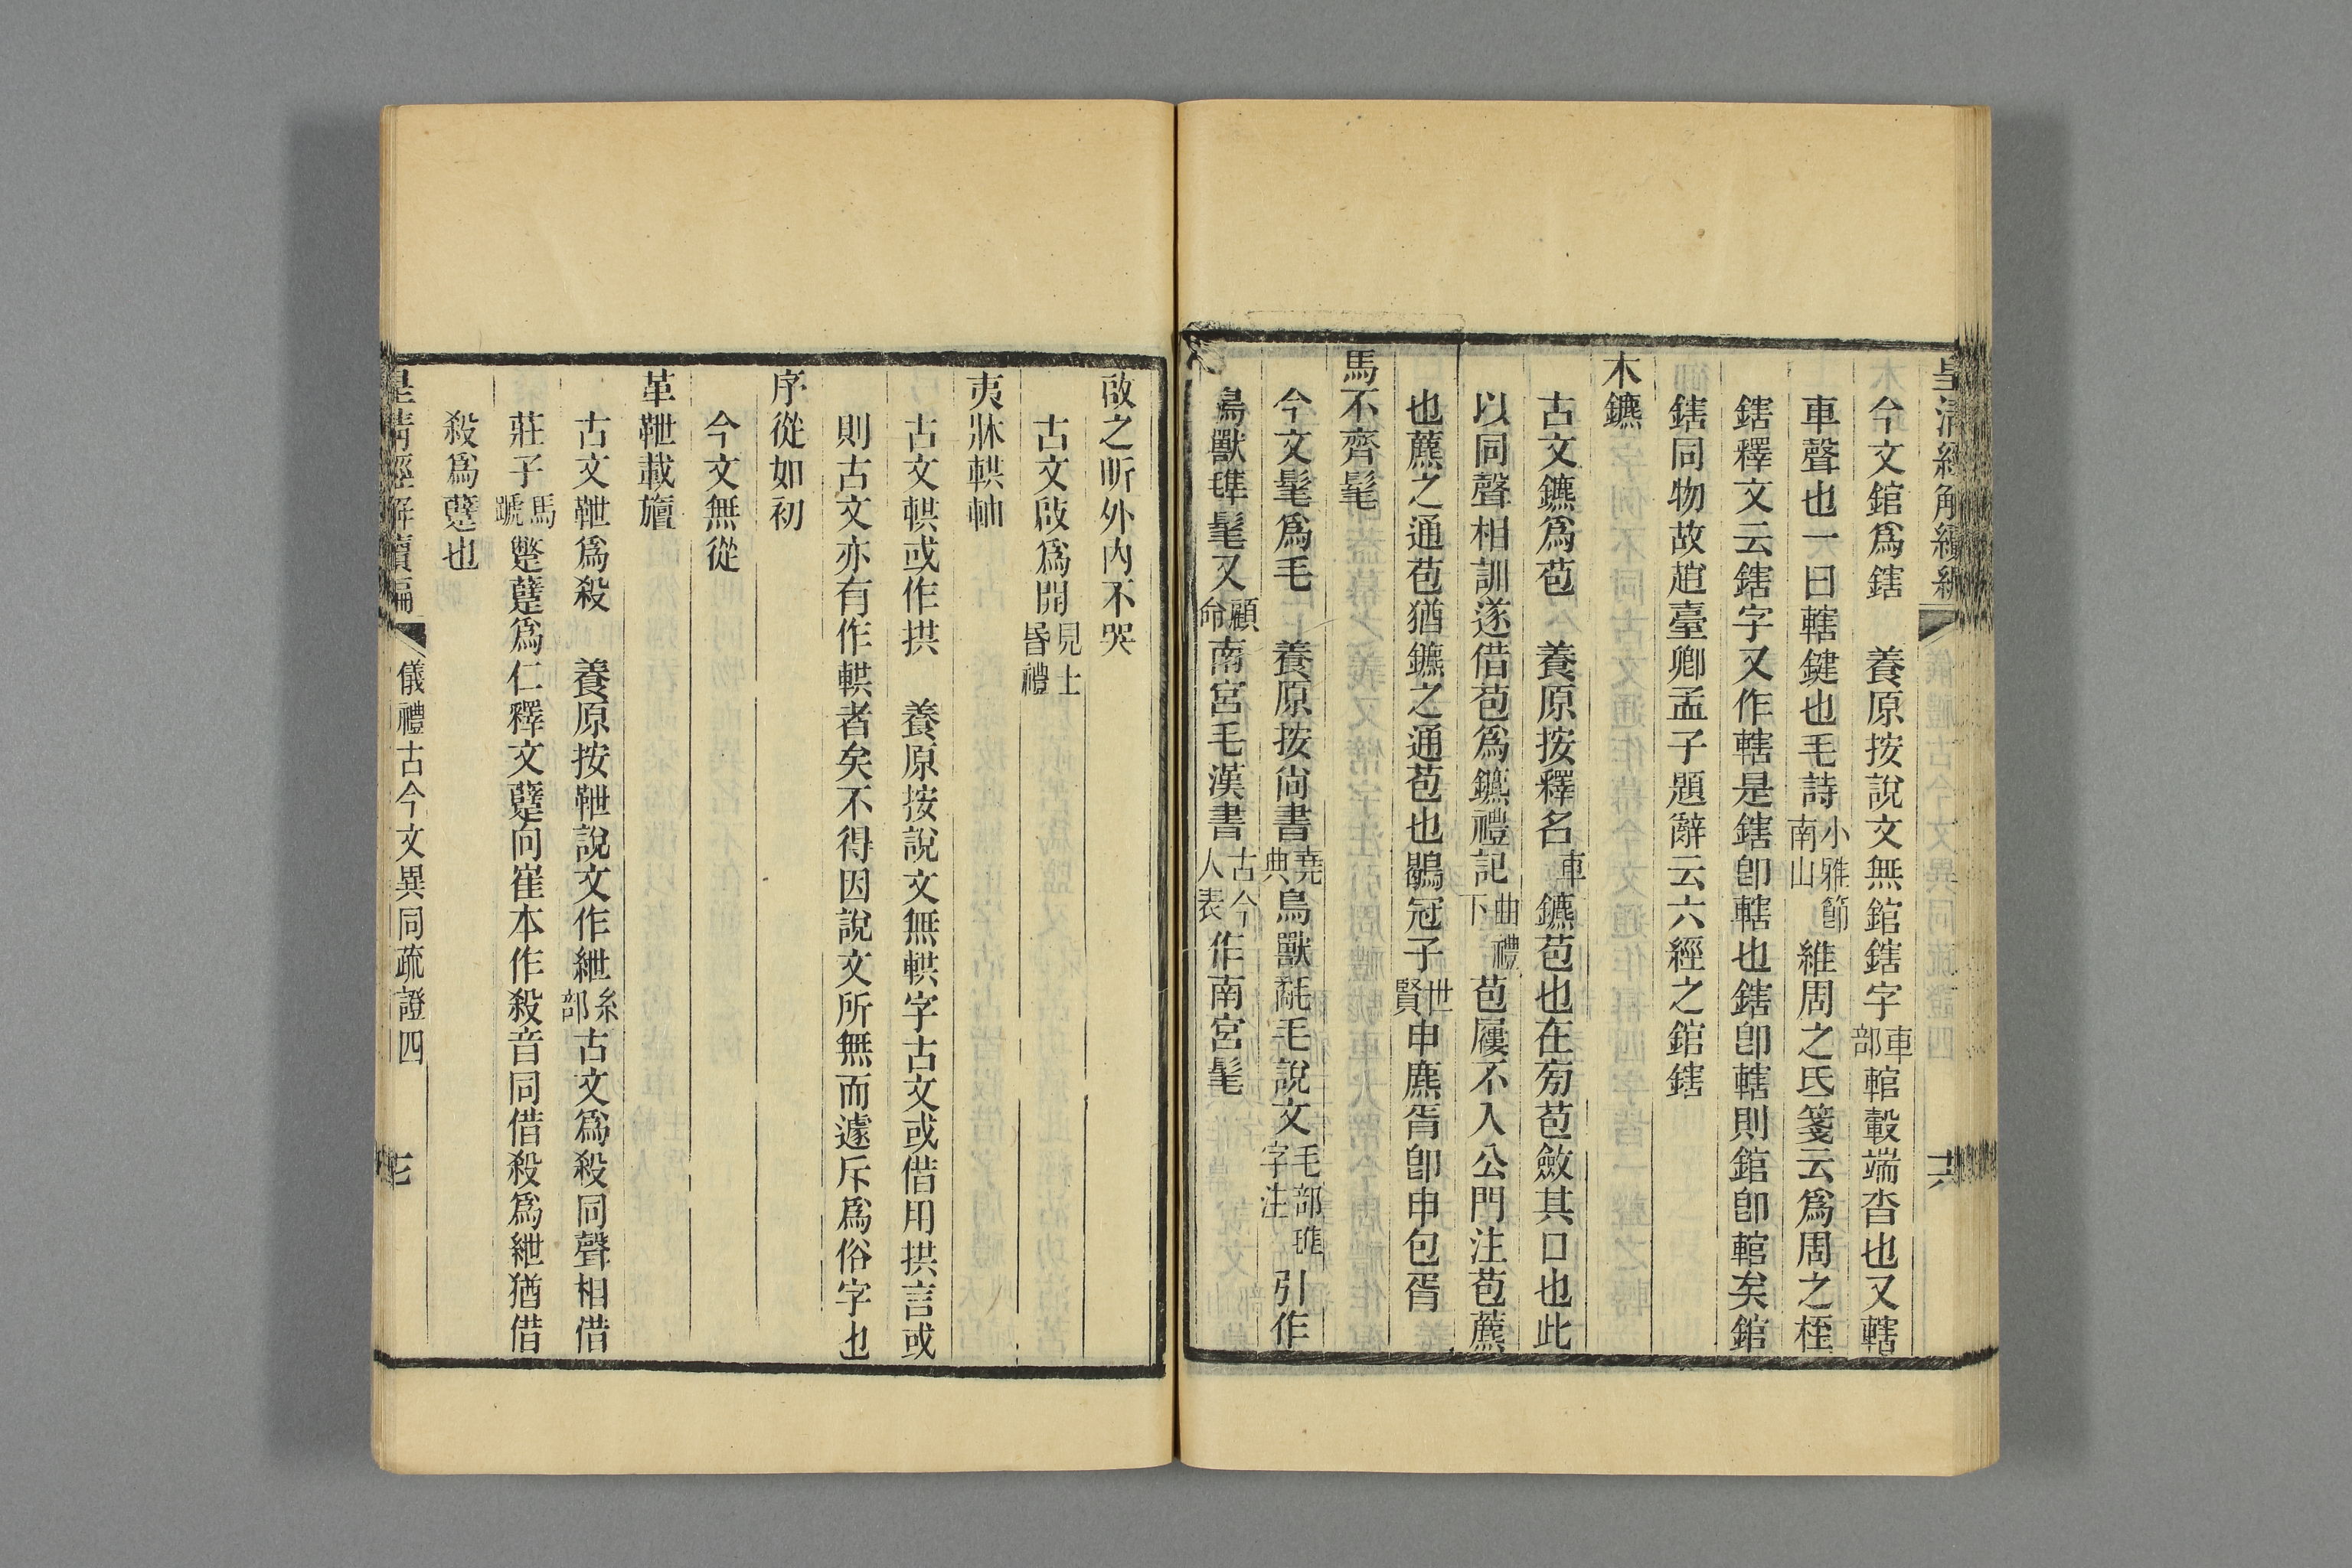 皇清經解續編
十六
今文錧爲鎋　養原按說文無錧鎋字車部輨轂端沓也又轄
車聲也一曰轄鍵也毛詩小雅節南山維周之氐箋云爲周之桎
鎋釋文云鎋字又作轄是鎋卽轄也鎋卽轄則錧卽輨矣錧
鎋同物故趙臺卿孟子題辭云六經之錧鎋
木鑣
古文鑣爲苞　養原按釋名車鑣苞也在旁苞斂其口也此
以同聲相訓遂借苞爲鑣禮記曲禮下苞屨不入公門注苞藨
也藨之通苞猶鑣之通苞也鶡冠子世賢申麃胥卽申包胥
馬不齊髦
今文髦爲毛　養原按尙書堯典鳥獸氄毛說文毛部䍸字注引作
鳥獸䍸髦又顧命南宮毛漢書古今人表作南宮髦
啟之昕外內不哭
古文啟爲開見士昏禮
夷牀輁軸
古文輁或作拱　養原按說文無輁字古文或借用拱言或
則古文亦有作輁者矣不得因說文所無而遽斥爲俗字也
序從如初
今文無從
革靾載旜
古文靾爲殺　養原按靾說文作紲糸部古文爲殺同聲相借
莊子馬蹏蹩躠爲仁釋文躠向崔本作殺音同借殺爲紲猶借
殺爲躠也
皇清經解續編
儀禮古今文異同疏證四